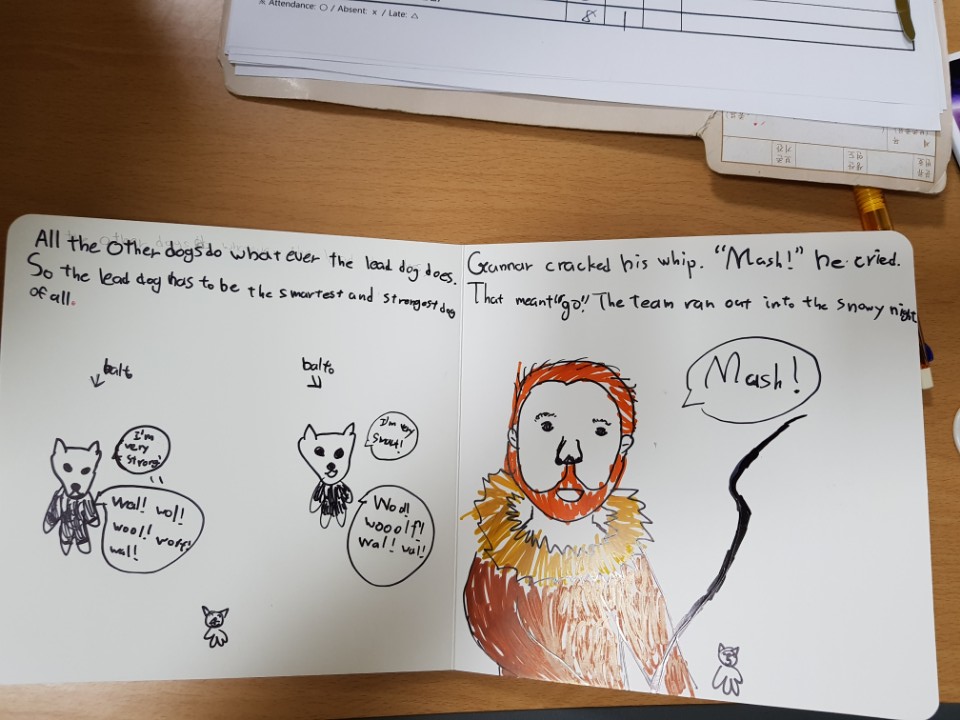 ※ Attendance: ○ / Absent: x / Late: △
8 1
All the Other dogs do what ever the lead dog does.
So the lead dog has to be the smartest and strongest dog
of all.
balto
I'm
very
strong!
Wal! wol!
wool! woff!
wal!
balto
I'm very
Smart!
Wod!
wooolf!
Wal! wal!
Gunnar cracked his whip. "Mash!" he cried.
That meant "go". The team ran out into the snowy night
Mash!